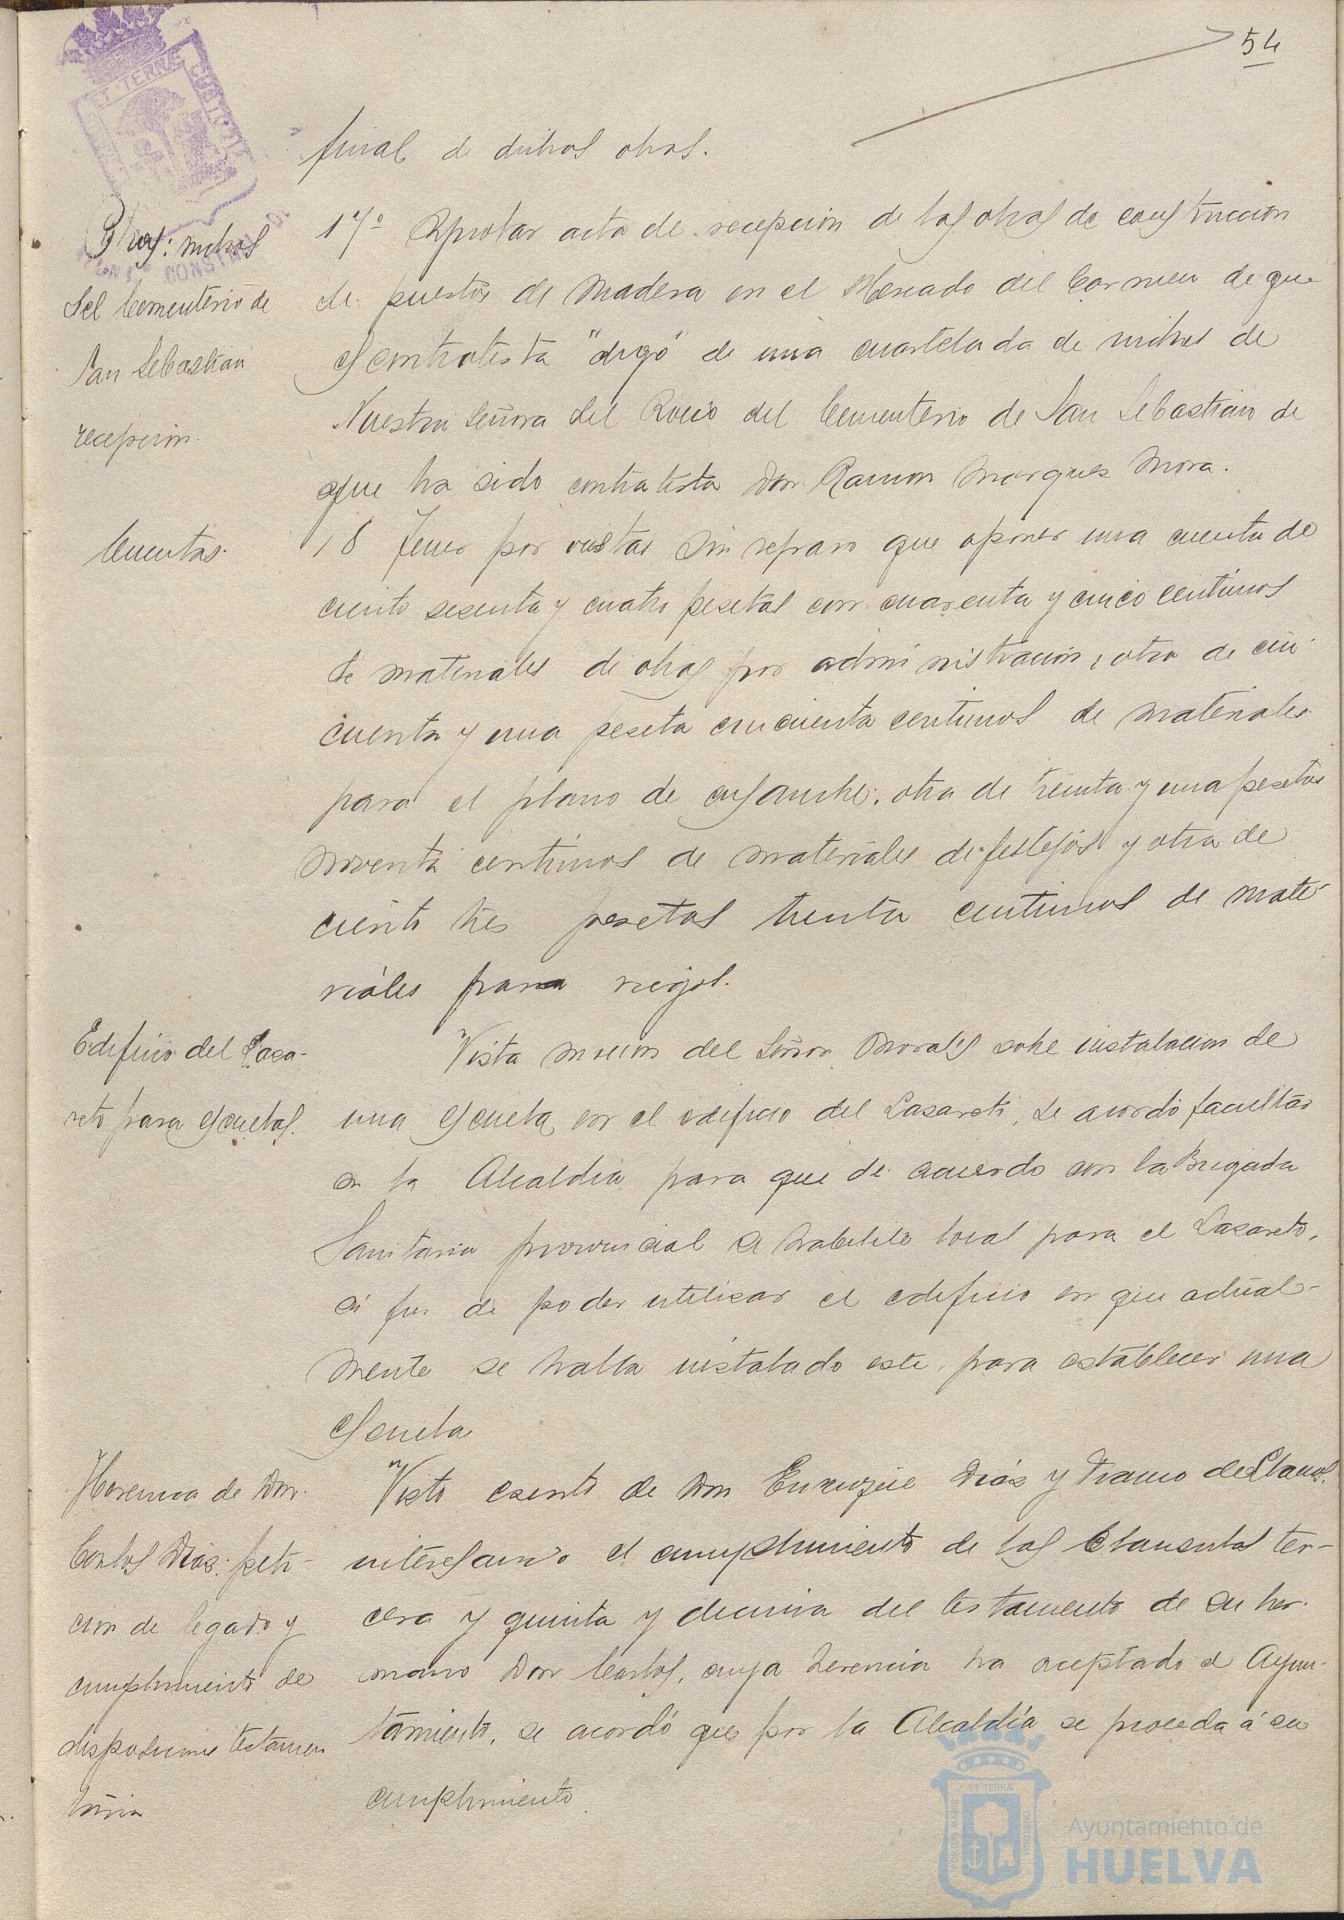 54
final de dichas obras.
Obras: nichos
del Cementerio de
San Sebastian
recepcion.
17º Aprobar acta de recepcion de las obras de construccion
de puestos de madera en el Mercado del Carmen de que
es contratista "digo" de una cuartelada de nichos de
Nuestra Señora del Rocio del Cementerio de San Sebastian de
que ha sido contratista Don Ramon Marquez Mora.
Cuentas.
18 Tener por vistas sin reparo que oponer una cuenta de
ciento sesenta y cuatro pesetas con cuarenta y cinco centimos
de materiales de obras por administracion, otra de cin-
cuenta y una peseta cincuenta centimos de materiales
para el plano de ensanche; otra de treinta y una pesetas
noventa centimos de materiales de festejos y otra de
ciento tres pesetas treinta centimos de mate-
riales para riegos.
Edificio del Laza-
reto para escuelas.
Vista mocion del Señor Morales sobre instalacion de
una escuela en el edificio del Lazareto, se acordó facultar
a la Alcaldia para que de acuerdo con la Brigada
Sanitaria provincial se habilite local para el Lazareto,
a fin de poder utilizar el edificio en que actual-
mente se halla instalado este, para establecer una
Escuela
Herencia de Don
Carlos Diaz: peti-
cion de legado y
cumplimiento de
disposicione testamen
taria
Visto escrito de Don Enrique Diaz y Franco de Llanos,
interesando el cumplimiento de las Clausulas ter-
cera y quinta y decima del testamento de su her-
mano Don Carlos, cuya herencia ha aceptado el Ayun-
tamiento, se acordó que por la Alcaldía se proceda á su
cumplimiento.
Ayuntamiento de
HUELVA